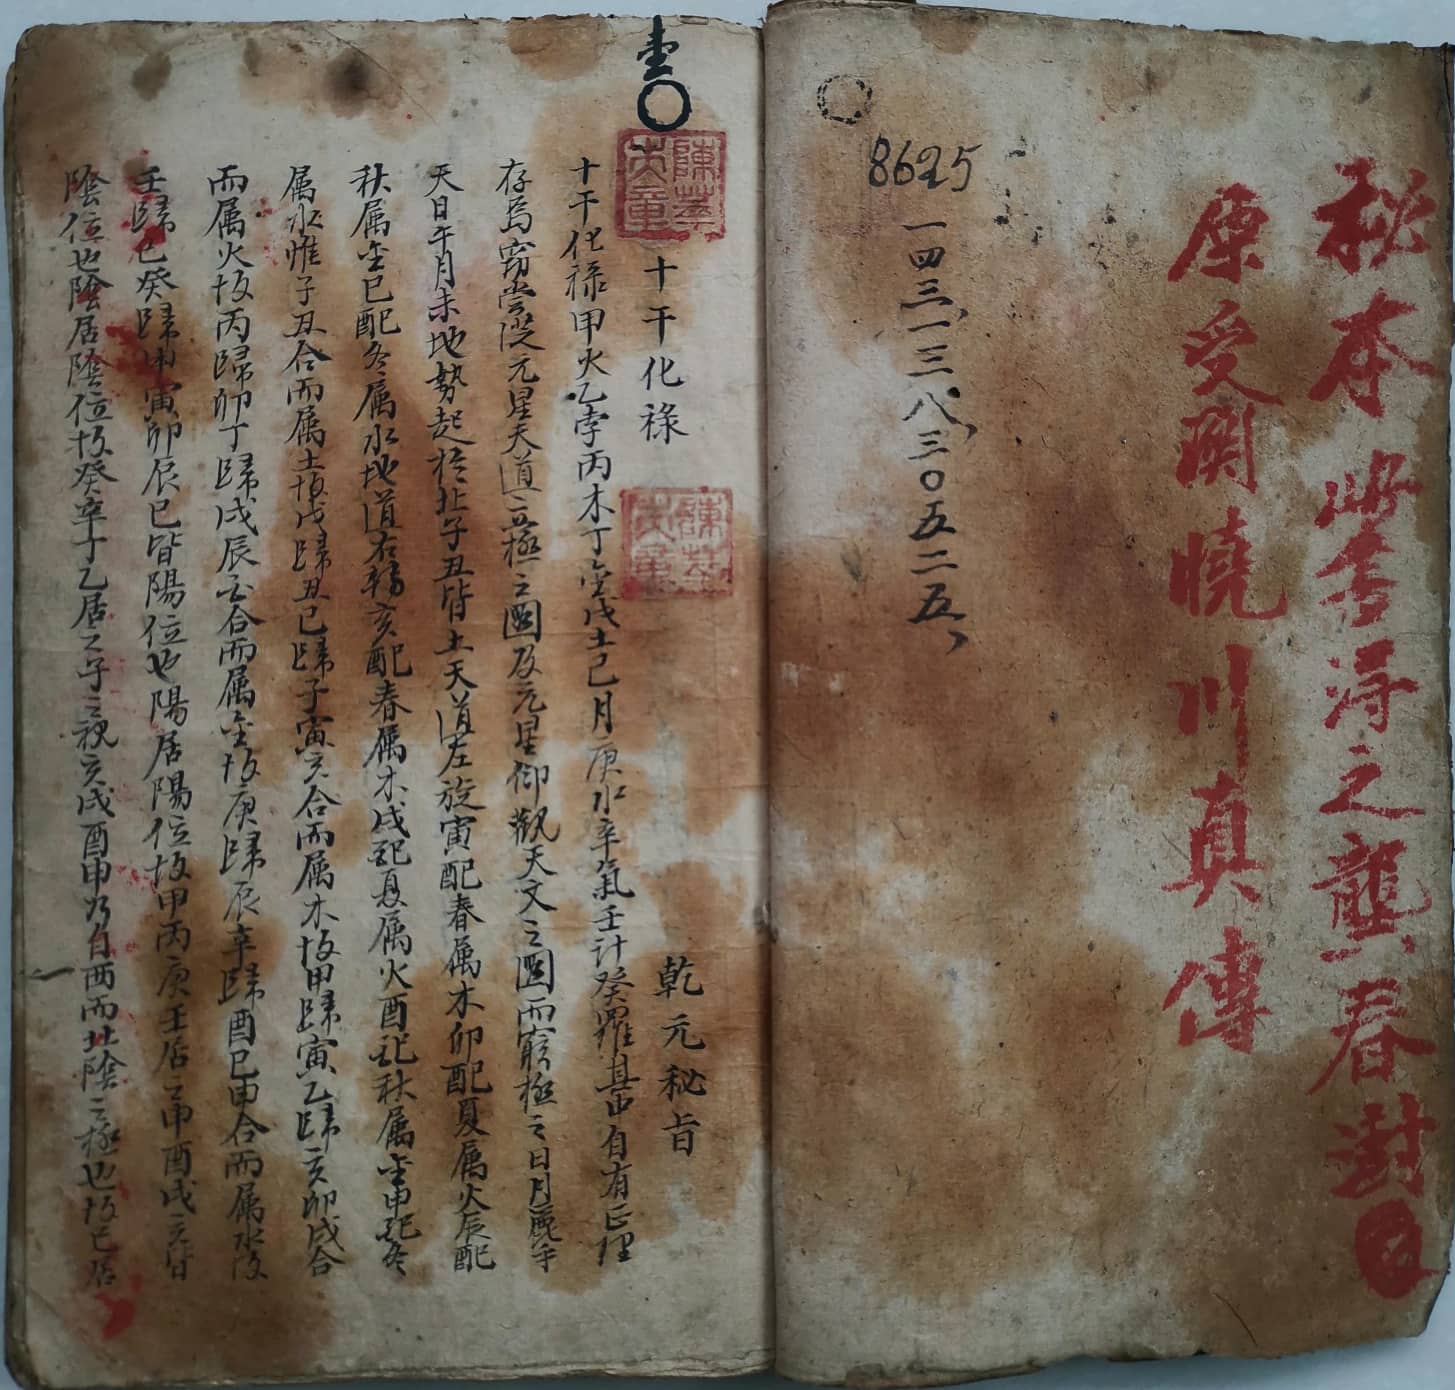 秘本此書得之龔春澍
原受関曉川真傳
8625
一四三一三八三〇五二五
十干化祿 乾元秘旨
十干化祿甲火乙孛丙木丁金戊土己月庚水辛氣壬計癸羅其中自有正理
存焉窃嘗從元星天道立極之圖及元星仰觀天文之圖而窮極之日月麗乎
天日午月未地勢起於北子丑皆土天道左旋寅配春属木卯配夏属火辰配
秋属金巳配冬属水地道右轉亥配春属木戌配夏属火酉配秋属金申配冬
属水惟子丑合而属土故戊歸丑己歸子寅亥合而属木故甲歸寅乙歸亥卯戌合
而属火故丙歸卯丁歸戌辰酉合而属金故庚歸辰辛歸酉巳申合而属水故
壬歸巳癸歸申寅卯辰巳皆陽位也陽居陽位故甲丙庚壬居之申酉戌亥皆
陰位也陰居陰位故癸辛丁乙居之子之視亥戌酉申乃自西而北陰之極也故己居
陳
陳